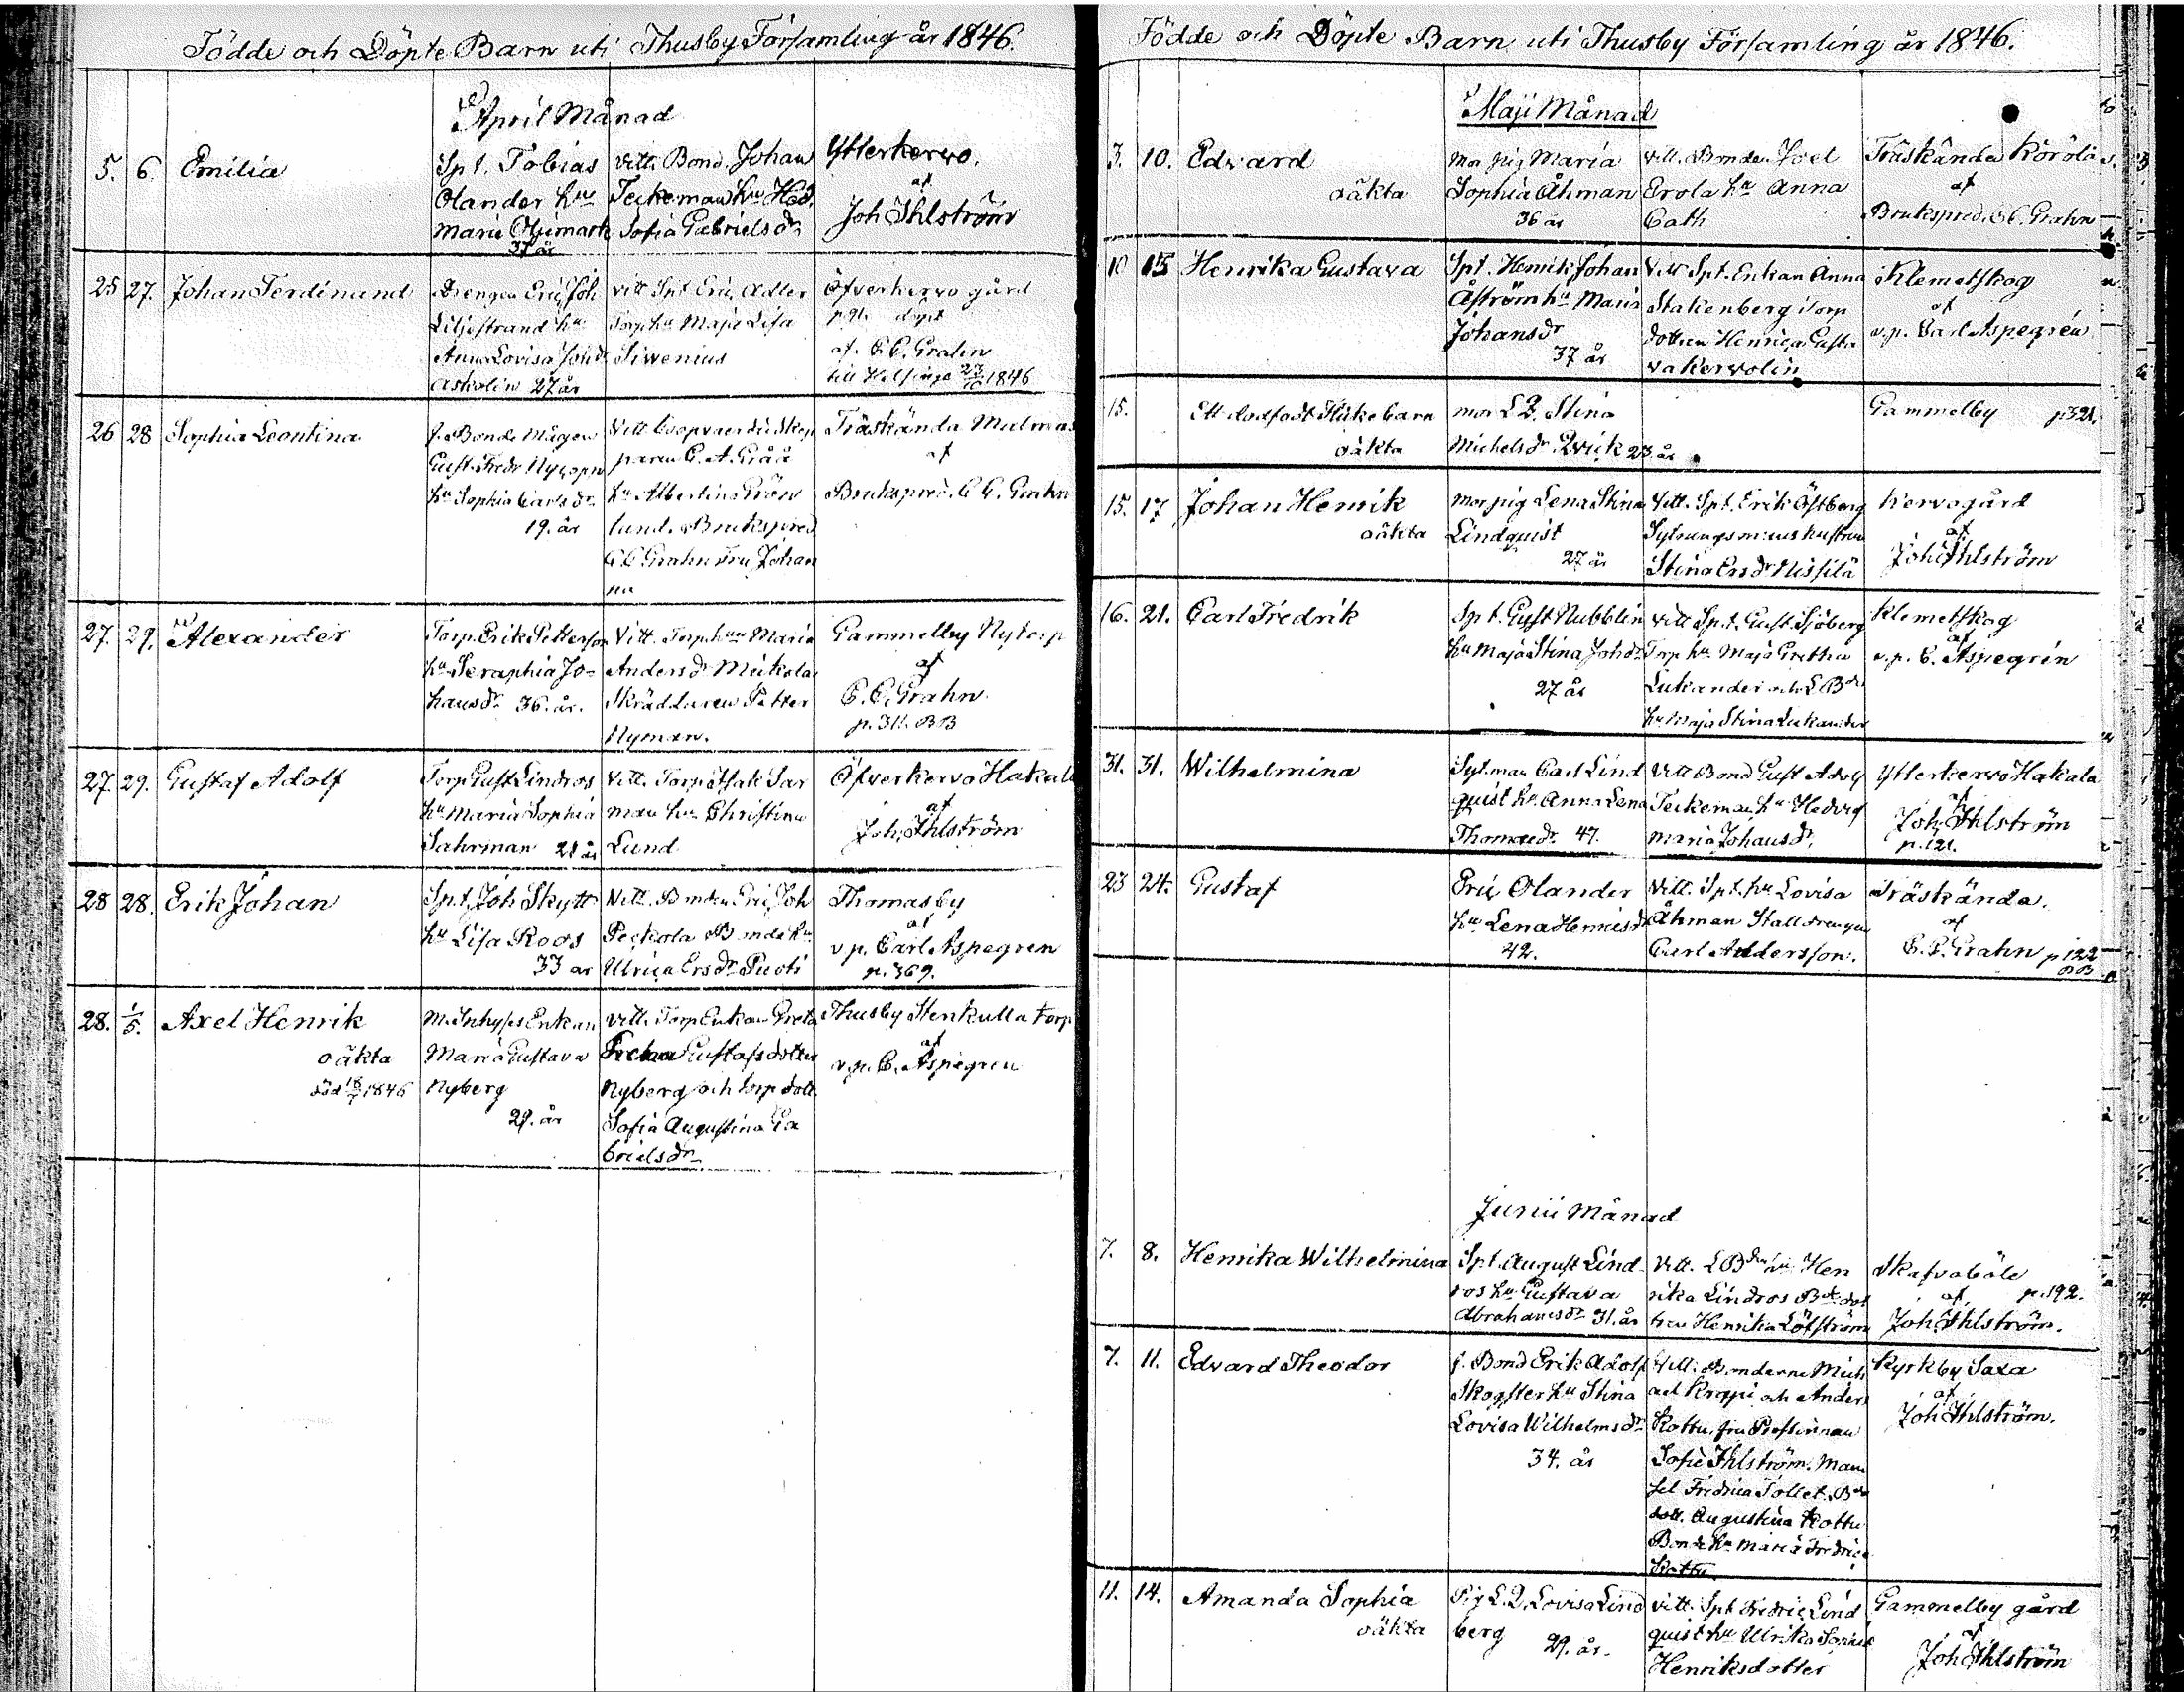 Födde och Döpte Barn uti Thusby Församling år 1846.
April Månad
5. 6. Emilia
Spt. Tobias
Olander hu
Maria
37 år
Vitt. Bond. Johan
Teckeman hu Hed.
Sofia Gabrielsdr
Ytterkervo.
af
Joh Ihlström
25 27. Johan Ferdinand
Drengen Eric Joh
Liljestrand hu
Anna Lovisa Johdr
Askolin 27 år
Vitt Spt Eric Adler
Torp hu Maja Lisa
Sirvenius
Öfverkervo gård
af. C.C. Grahn
till Helsinge 23/10 1846
26 28 Sophia Leontina
f. Bonde Mågen
Gust. Fredr Nyroppn
hu Sophia Carlsdr
19. år
Vitt Coopvaerdie Skep
paren C. A. Gråå
hu Albertina Grön
lund. Brukspred
C C Grahn Fru Johan
na
Träskända
af
Brukspred. C C. Grahn
27. 29. Alexander
Torp. Erik Petterson
hu Seraphia Jo-
hansdr 36. år.
Vitt. Torp hun Maria
Andersdr Meikola
Skräddaren Petter
Nyman.
Gammelby Nytorp
af
C. C. Grahn.
p. 311. BB
27. 29. Gustaf Adolf
Torp Gust Lindros
hu Maria Sophia
Sahrman 21 år
Vitt. Torp Isak Sar
man hu Christina
Lund
Öfverkervo Hakala
af
Joh. Ihlström
28 28. Erik Johan
Spt. Joh Skytt
hu Lisa Roos
33 år
Vitt. Bonden Eric Joh
Peckola Bonde hu
Ulrica Ersdr Puoti
Thomasby
af
v p. Carl Aspegren
p. 369.
28. 1/5. Axel Henrik
oäkta
död 18/7 1846
M. Inhyses Enkan
Maria Gustava
Nyberg
29. år
Vitt. Torp Enkan Greta
Gustafsdotter
Nyberg och torp dott.
Sofia Augustina Ga
brielsdr
Thusby Stenkulla torp
af
v.p. C. Aspegren
Födde och Döpte Barn uti Thusby Församling år 1846.
Maji Månad
3. 10. Edvard
oäkta
Mor pig Maria
Sophia Åhman
36 år
Vitt. Bonden Joel
Erola hu Anna
Cath
Träskända
af
Brukspred. C C. Grahn
10 15 Henrika Gustava
Spt. Henrik Johan
Åström hu Maria
Johansdr
37 år
Vitt Spt. Enkan Anna
Stakenberg Torp
dottren Henrica Gusta
va Kervolin
Klemetskog
af
v.p. Carl Aspegrén
15.
Ett dödfödt flicke barn
oäkta
mor L D. Stina
Michelsdr Qvick 23 år
Gammelby p321.
15. 17 Johan Henrik
oäkta
Mor pig Lena Stina
Lindquist
27 år
Vitt. Spt. Erik Östberg
Sytningsmans hustrun
Stina Ersdr Nissilä
Kervo gård
af
Joh Ihlström
16. 21. Carl Fredrik
Spt. Gust Nubblin
hu Maja Stina Johdr
27 år
Vitt Spt. Gust. Sjöberg
Torp hu. Maja Gretha
Lukander och L Bde
hu Maja Stina Lukander
Klemetskog
af
v.p. C. Aspegrén
31. 31. Wilhelmina
Syt. man Carl Lind
quist hu Anna Lena
Thomasdr. 47.
Vitt Bond Gust Adolf
Teckeman hu Hedvig
Maria Johansdr.
Ytterkervo Hakala
af
Joh. Ihlström
p. 121.
23 24. Gustaf
Eric Olander
hu Lena Henricsdr
42.
Vitt. Spt. hu Lovisa
Åhman Stalldrengen
Carl Andersson.
Träskända.
af
C. C. Grahn p 122
BB
Junii Månad
7. 8. Henrika Wilhelmina
Spt. August Lind-
ros hu Gustava
Abrahamsdr 31. år
Vitt. L Bden Hen
rika Lindros Bde dot
tren Henrika Löfström
Skafvaböle
af p. 192.
Joh. Ihlström.
7. 11. Edvard Theodor
f. Bond Erik Adolf
Skogster hu Stina
Lovisa Wilhelmsdr
34. år
Vitt. Bönderne Mich
ael Krapi och Anders
Kottu, fru Prostinnan
Sofie Ihlström. Mam
sel Fredrica Tollet. Bde
dott. Augustina Kottu
Bonde hu Maria Fredrica
Kottu.
Kyrkby Saxa
af
Joh Ihlström.
11. 14. Amanda Sophia
oäkta
Pig L. D. Lovisa Lind
berg
29. år.
Vitt. Spt Fredric Lind
quist hu Ulrika Sophia
Henriksdotter
Gammelby gård
af
Joh Ihlström